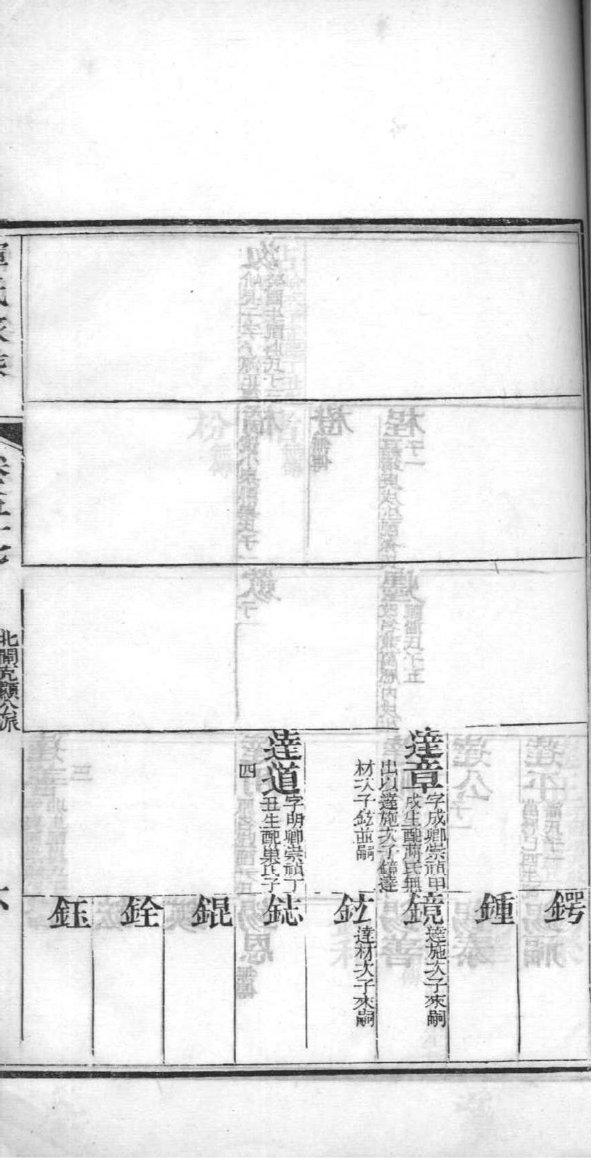 達章
字成卿崇禎甲
戍生配蔣氏無
出以達施次子鏡達
材次子鉉並嗣
達道
字明卿崇禎丁
丑生配巢氏子
四
鍔
鍾
鏡
達施次子來嗣
鉉
達材次子來嗣
鋕
錕
銓
鈺
惲氏家乘
卷五十七